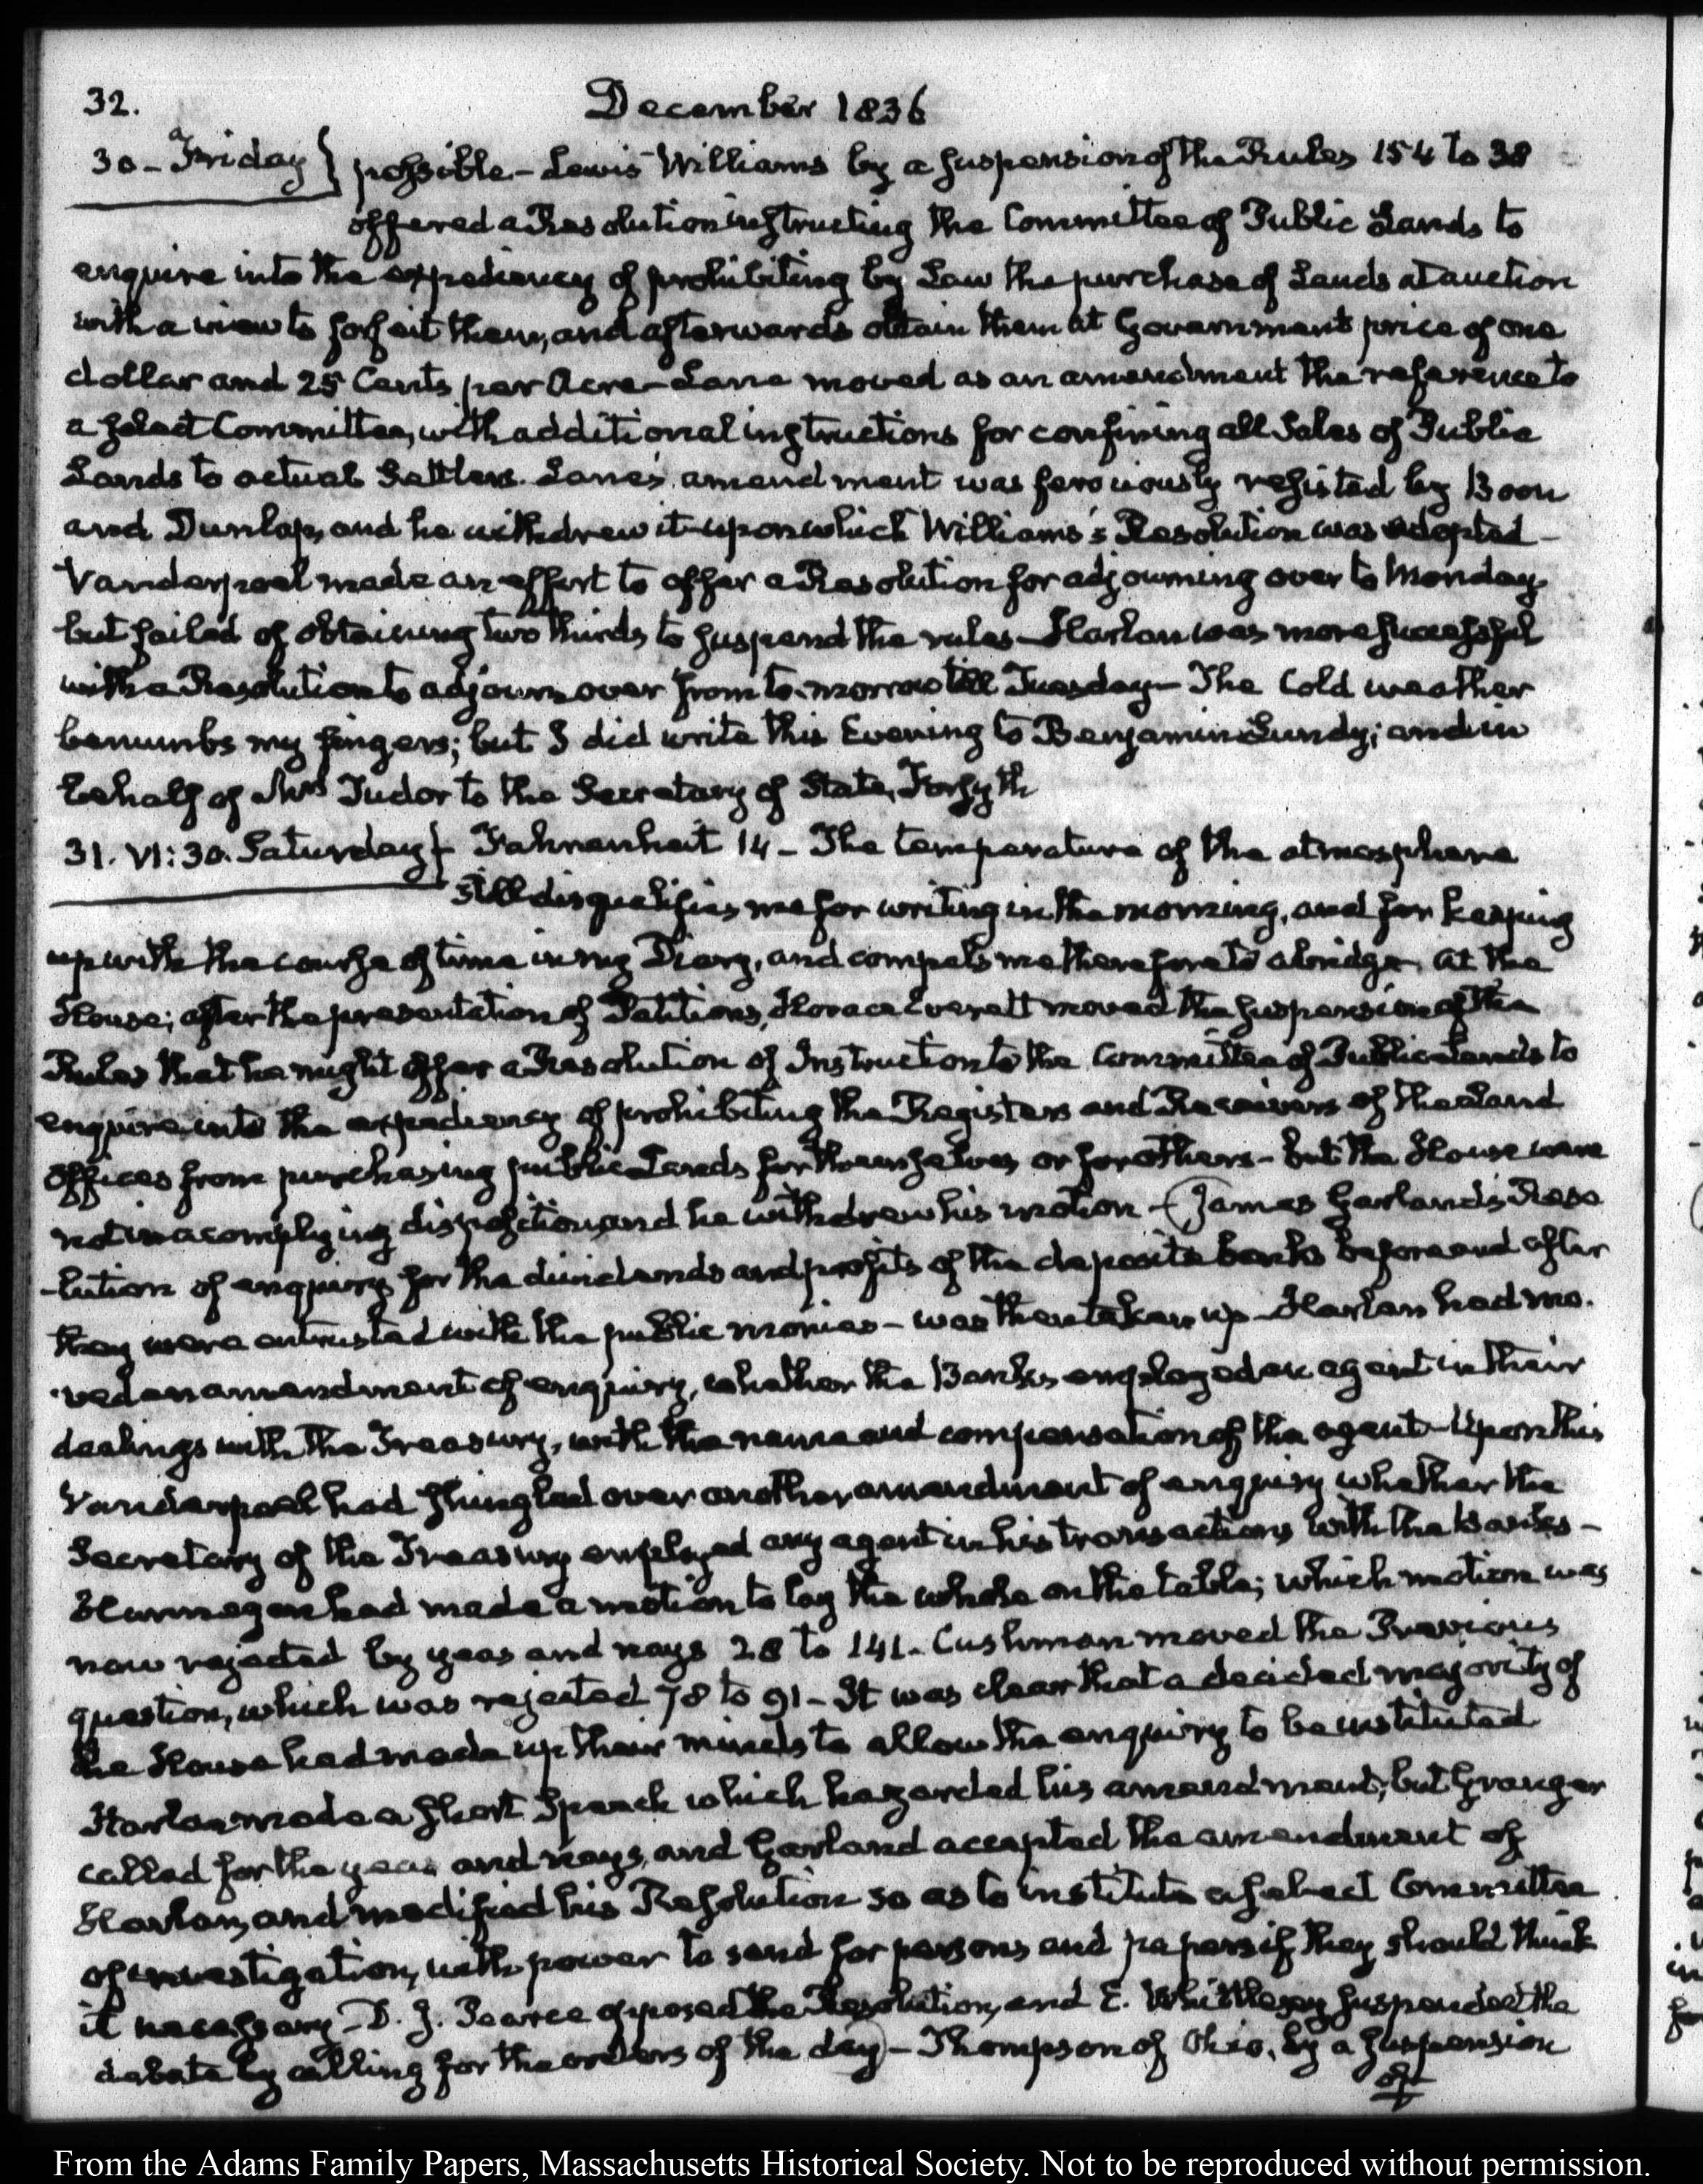 32.
December 1836
30 - Friday } possible - Lewis Williams by a suspension of the Rules 154 to 38
offered a Resolution instructing the Committee of Public Lands to
enquire into the expediency of prohibiting by Law the purchase of Lands at auction
with a view to forfeit them, and afterwards obtain them at Government price of one
dollar and 25 Cents per Acre - Lane moved as an amendment the reference to
a select Committee, with additional instructions for confining all Sales of Public
Lands to actual Settlers. Lane's amendment was ferociously resisted by Boon
and Dunlap, and he withdrew it - upon which Williams's Resolution was adopted -
Vanderpoel made an effort to offer a Resolution for adjourning over to Monday
but failed of obtaining two thirds to suspend the rules - Harlan was more successful
with a Resolution to adjourn over from to-morrow till Tuesday - The Cold weather
benumbs my fingers; but I did write this Evening to Benjamin Lundy; and in
behalf of Mrs Tudor to the Secretary of State, Forsyth
31. VI:30. Saturday } Fahrenheit 14 - The temperature of the atmosphere
still disqualifies me for writing in the morning, and for keeping
up with the course of time in my Diary, and compels me therefore to abridge. At the
House; after the presentation of Petitions, Horace Everett moved the suspension of the
Rules that he might offer a Resolution of Instruction to the Committee of Public Lands to
enquire into the expediency of prohibiting the Registers and Receivers of the Land
Offices from purchasing public Lands for themselves or for others - but the House were
not in a complying disposition and he withdrew his motion - (James Garland's Reso
-lution of enquiry for the dividends and profits of the deposite banks before and after
they were entrusted with the public monies - was then taken up - Harlan had mo-
-ved an amendment of enquiry, whether the Banks employed an agent in their
dealings with the Treasury, with the name and compensation of the agent - Upon this
Vanderpoel had shingled over another amendment of enquiry whether the
Secretary of the Treasury employed any agent in his transactions with the Banks -
Hannegan had made a motion to lay the whole on the table; which motion was
now rejected by yeas and nays 28 to 141. Cushman moved the Previous
question, which was rejected 78 to 91 - It was clear that a decided majority of
the House had made up their minds to allow the enquiry to be instituted
Harlan made a short Speech which hazarded his amendment; but Granger
called for the yeas and nays, and Garland accepted the amendment of
Harlan, and modified his Resolution so as to institute a select Committee
of investigation, with power to send for persons and papers if they should think
it necessary - D. J. Pearce opposed the Resolution, and E. Whittlesey suspended the
debate by calling for the orders of the day) - Thompson of Ohio, by a suspension
of
From the Adams Family Papers, Massachusetts Historical Society. Not to be reproduced without permission.